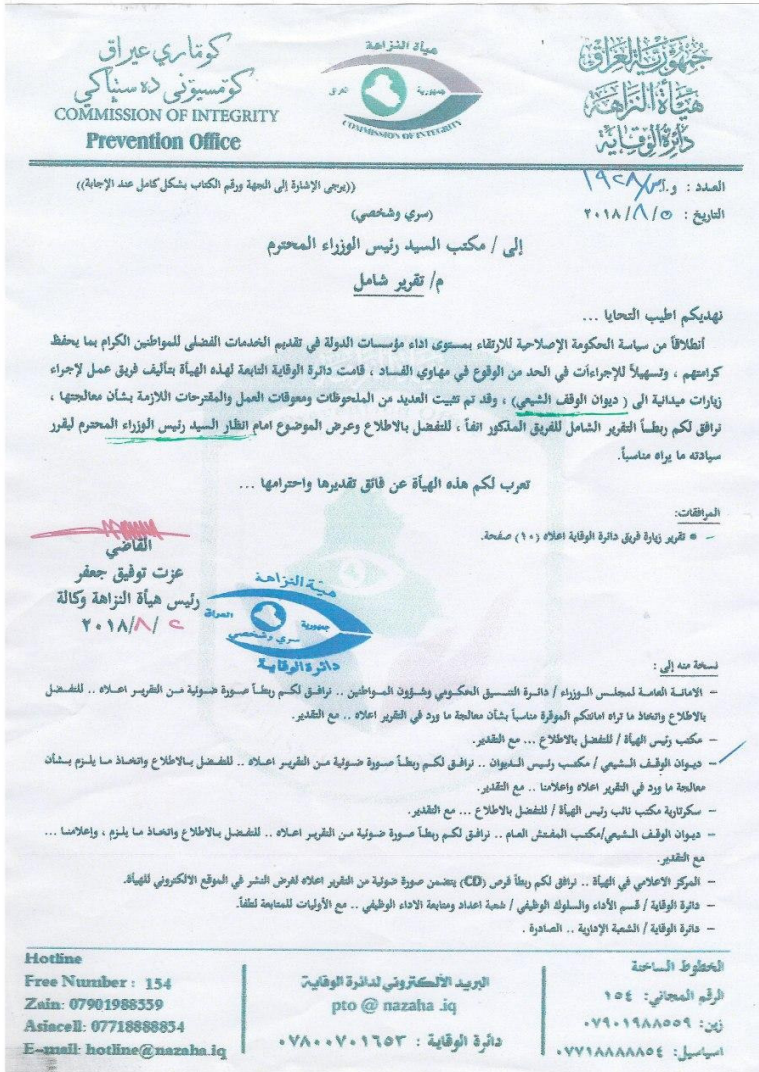 جمهورية العراق
هيأة النزاهة
دائرة الوقاية
هيأة النزاهة
جمهورية العراق
COMMISSION OF INTEGRITY
كۆماری عیراق
كۆمسیۆنی دەستپاكی
COMMISSION OF INTEGRITY
Prevention Office
العدد : و.أس/١٩٢٨
((يرجى الإشارة إلى الجهة ورقم الكتاب بشكل كامل عند الإجابة))
التاريخ : ٥/٨/٢٠١٨
(سري وشخصي)
إلى / مكتب السيد رئيس الوزراء المحترم
م/ تقرير شامل
نهديكم اطيب التحايا ...
أنطلاقاً من سياسة الحكومة الإصلاحية للارتقاء بمستوى اداء مؤسسات الدولة في تقديم الخدمات الفضلى للمواطنين الكرام بما يحفظ
كرامتهم ، وتسهيلاً للإجراءات في الحد من الوقوع في مهاوي الفساد ، قامت دائرة الوقاية التابعة لهذه الهيأة بتأليف فريق عمل لإجراء
زيارات ميدانية الى ( ديوان الوقف الشيعي) ، وقد تم تثبيت العديد من الملحوظات ومعوقات العمل والمقترحات اللازمة بشأن معالجتها ،
نرافق لكم ربطاً التقرير الشامل للفريق المذكور انفاً ، للتفضل بالاطلاع وعرض الموضوع امام انظار السيد رئيس الوزراء المحترم ليقرر
سيادته ما يراه مناسباً.
تعرب لكم هذه الهيأة عن فائق تقديرها واحترامها ...
المرافقات:
• تقرير زيارة فريق دائرة الوقاية اعلاه (١٠) صفحة.
القاضي
عزت توفيق جعفر
رئيس هيأة النزاهة وكالة
٢/٨/٢٠١٨
هيئة النزاهة
جمهورية العراق
سري وشخصي
دائرة الوقاية
نسخة منه إلى :
– الامانة العامة لمجلس الوزراء / دائرة التنسيق الحكومي وشؤون المواطنين .. نرافق لكم ربطاً صورة ضوئية من التقرير اعلاه .. للتفضل
بالاطلاع واتخاذ ما تراه امانتكم الموقرة مناسباً بشأن معالجة ما ورد في التقرير اعلاه .. مع التقدير.
– مكتب رئيس الهيأة / للتفضل بالاطلاع ... مع التقدير.
– ديوان الوقف الشيعي / مكتب رئيس الديوان .. نرافق لكم ربطاً صورة ضوئية من التقرير اعلاه .. للتفضل بالاطلاع واتخاذ ما يلزم بشأن
معالجة ما ورد في التقرير اعلاه واعلامنا .. مع التقدير.
– سكرتارية مكتب نائب رئيس الهيأة / للتفضل بالاطلاع ... مع التقدير.
– ديوان الوقف الشيعي/مكتب المفتش العام .. نرافق لكم ربطاً صورة ضوئية من التقرير اعلاه .. للتفضل بالاطلاع واتخاذ ما يلزم ، وإعلامنا ...
مع التقدير.
– المركز الاعلامي في الهيأة .. نرافق لكم ربطاً قرص (CD) يتضمن صورة ضوئية من التقرير اعلاه لغرض النشر في الموقع الالكتروني للهيأة.
– دائرة الوقاية / قسم الأداء والسلوك الوظيفي / شعبة اعداد ومتابعة الاداء الوظيفي .. مع الأوليات للمتابعة لطفاً.
– دائرة الوقاية / الشعبة الإدارية .. الصادرة .
الخطوط الساخنة
الرقم المجاني: ١٥٤
زين: ٠٧٩٠١٩٨٨٥٥٩
اسياسيل: ٠٧٧١٨٨٨٨٨٥٤
البريد الألكتروني لدائرة الوقاية
pto @ nazaha .iq
دائرة الوقاية : ٠٧٨٠٠٧٠١٦٥٣
Hotline
Free Number : 154
Zain: 07901988559
Asiacell: 07718888854
E-mail: hotline@nazaha.iq